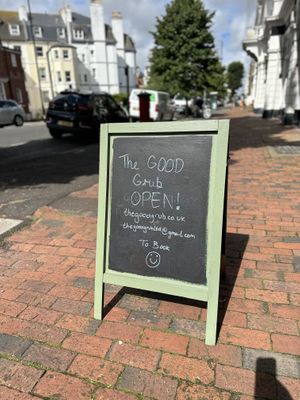 The GOOD
Grub
OPEN!
thegoodgrub.co.uk
thegoodgrub26@gmail.com
To Book